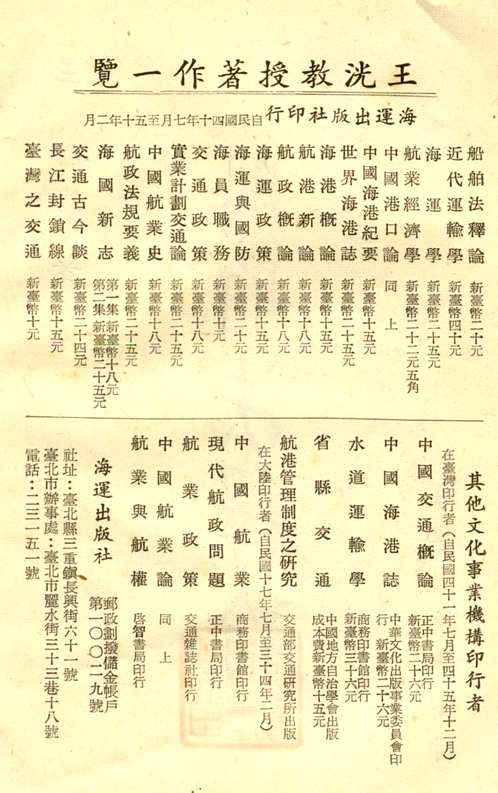 王洸教授著作一覽
海運出版社印行 自民國四十年七月至五十年二月
船舶法釋論 新臺幣二十元
近代運輸學 新臺幣四十元
海運學 新臺幣二十五元
航業經濟學 新臺幣二十二元五角
中國港口論 同上
中國海港紀要 新臺幣十五元
世界海港誌 新臺幣二十五元
海港概論 新臺幣十五元
航港新論 新臺幣十八元
航政概論 新臺幣十八元
海運政策 新臺幣十五元
海運與國防 新臺幣十元
海員職務 新臺幣十八元
交通政策 新臺幣十八元
實業計劃交通論 新臺幣二十五元
中國航業史 新臺幣十八元
航政法規要義 新臺幣二十五元
海國新志 第一集 新臺幣十八元
第二集 新臺幣二十五元
交通古今談 新臺幣二十四元
長江封鎖線 新臺幣十五元
臺灣之交通 新臺幣十元
其他文化事業機構印行者
在臺灣印行者(自民國四十一年七月至四十五年十二月)
中國交通概論 正中書局印行
新臺幣二十六元
中國海港誌 中華文化出版事業委員會印
行 新臺幣二十六元
水道運輸學 商務印書館印行
新臺幣三十六元
省縣交通 中國地方自治學會出版
成本費新臺幣十五元
航港管理制度之研究 交通部交通研究所出版
在大陸印行者(自民國十七年七月至三十四年二月)
中國航業 商務印書館印行
現代航政問題 正中書局印行
航業政策 交通雜誌社印行
中國航業論 同上
航業與航權 啓智書局印行
海運出版社 郵政劃撥儲金帳戶
第一〇〇二九號
社址:臺北縣三重鎮長興街六十一號
臺北市辦事處:臺北市麗水街三十三巷十八號
電話:二三一五一號